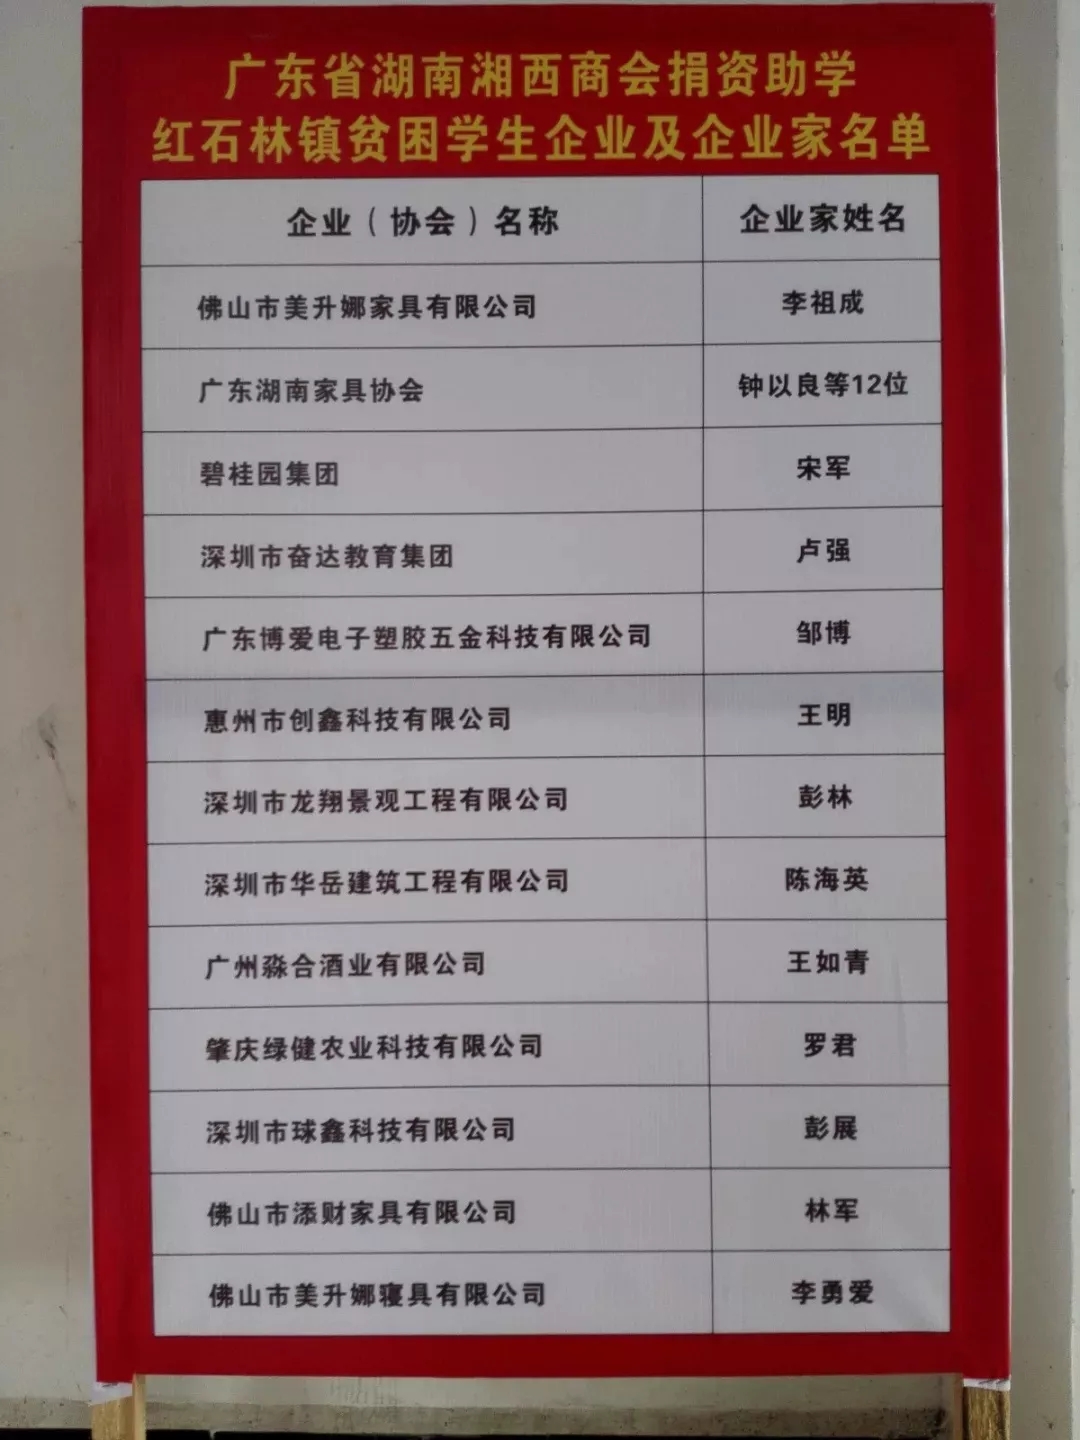 广东省湖南湘西商会捐资助学
红石林镇贫困学生企业及企业家名单
企业（协会）名称 企业家姓名
佛山市美升娜家具有限公司 李祖成
广东湖南家具协会 钟以良等12位
碧桂园集团 宋军
深圳市奋达教育集团 卢强
广东博爱电子塑胶五金科技有限公司 邹博
惠州市创鑫科技有限公司 王明
深圳市龙翔景观工程有限公司 彭林
深圳市华岳建筑工程有限公司 陈海英
广州淼合酒业有限公司 王如青
肇庆绿健农业科技有限公司 罗君
深圳市球鑫科技有限公司 彭展
佛山市添财家具有限公司 林军
佛山市美升娜寝具有限公司 李勇爱